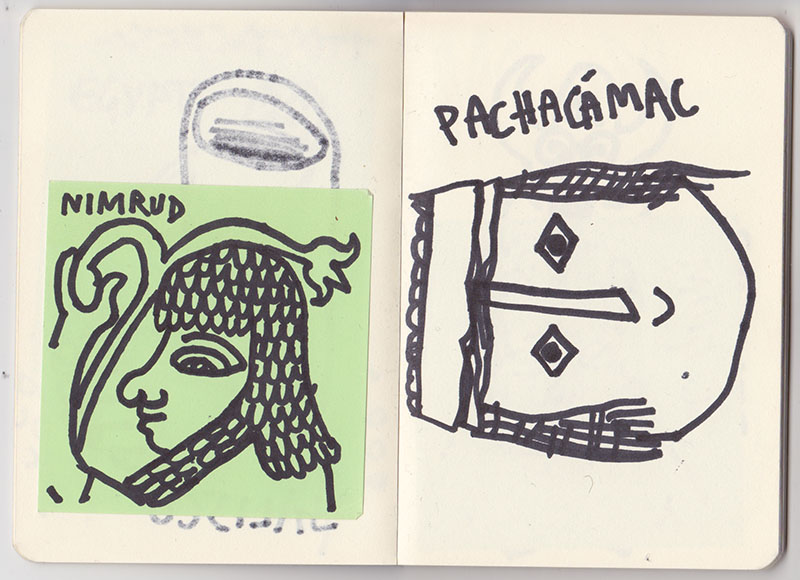 NIMRUD
PACHACÁMAC